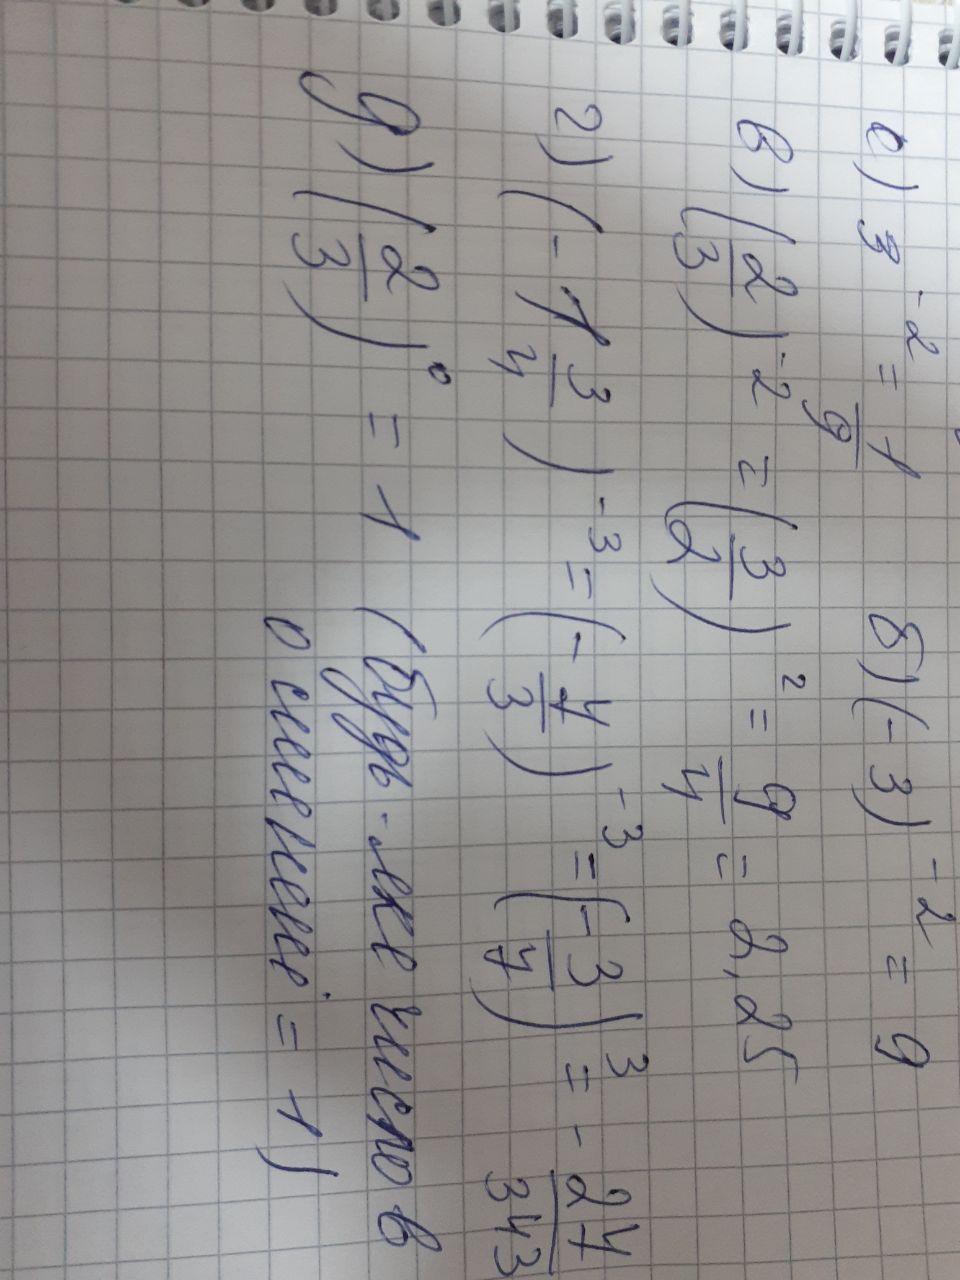 а) 3^-2 = 1/9 б) (-3)^-2 = 9
в) (2/3)^-2 = (3/2)^2 = 9/4 = 2,25
г) (-1 3/4)^-3 = (-7/3)^-3 = (-3/7)^3 = -27/343
д) (2/3)^0 = 1 (будь-яке число в
0 степені = 1)